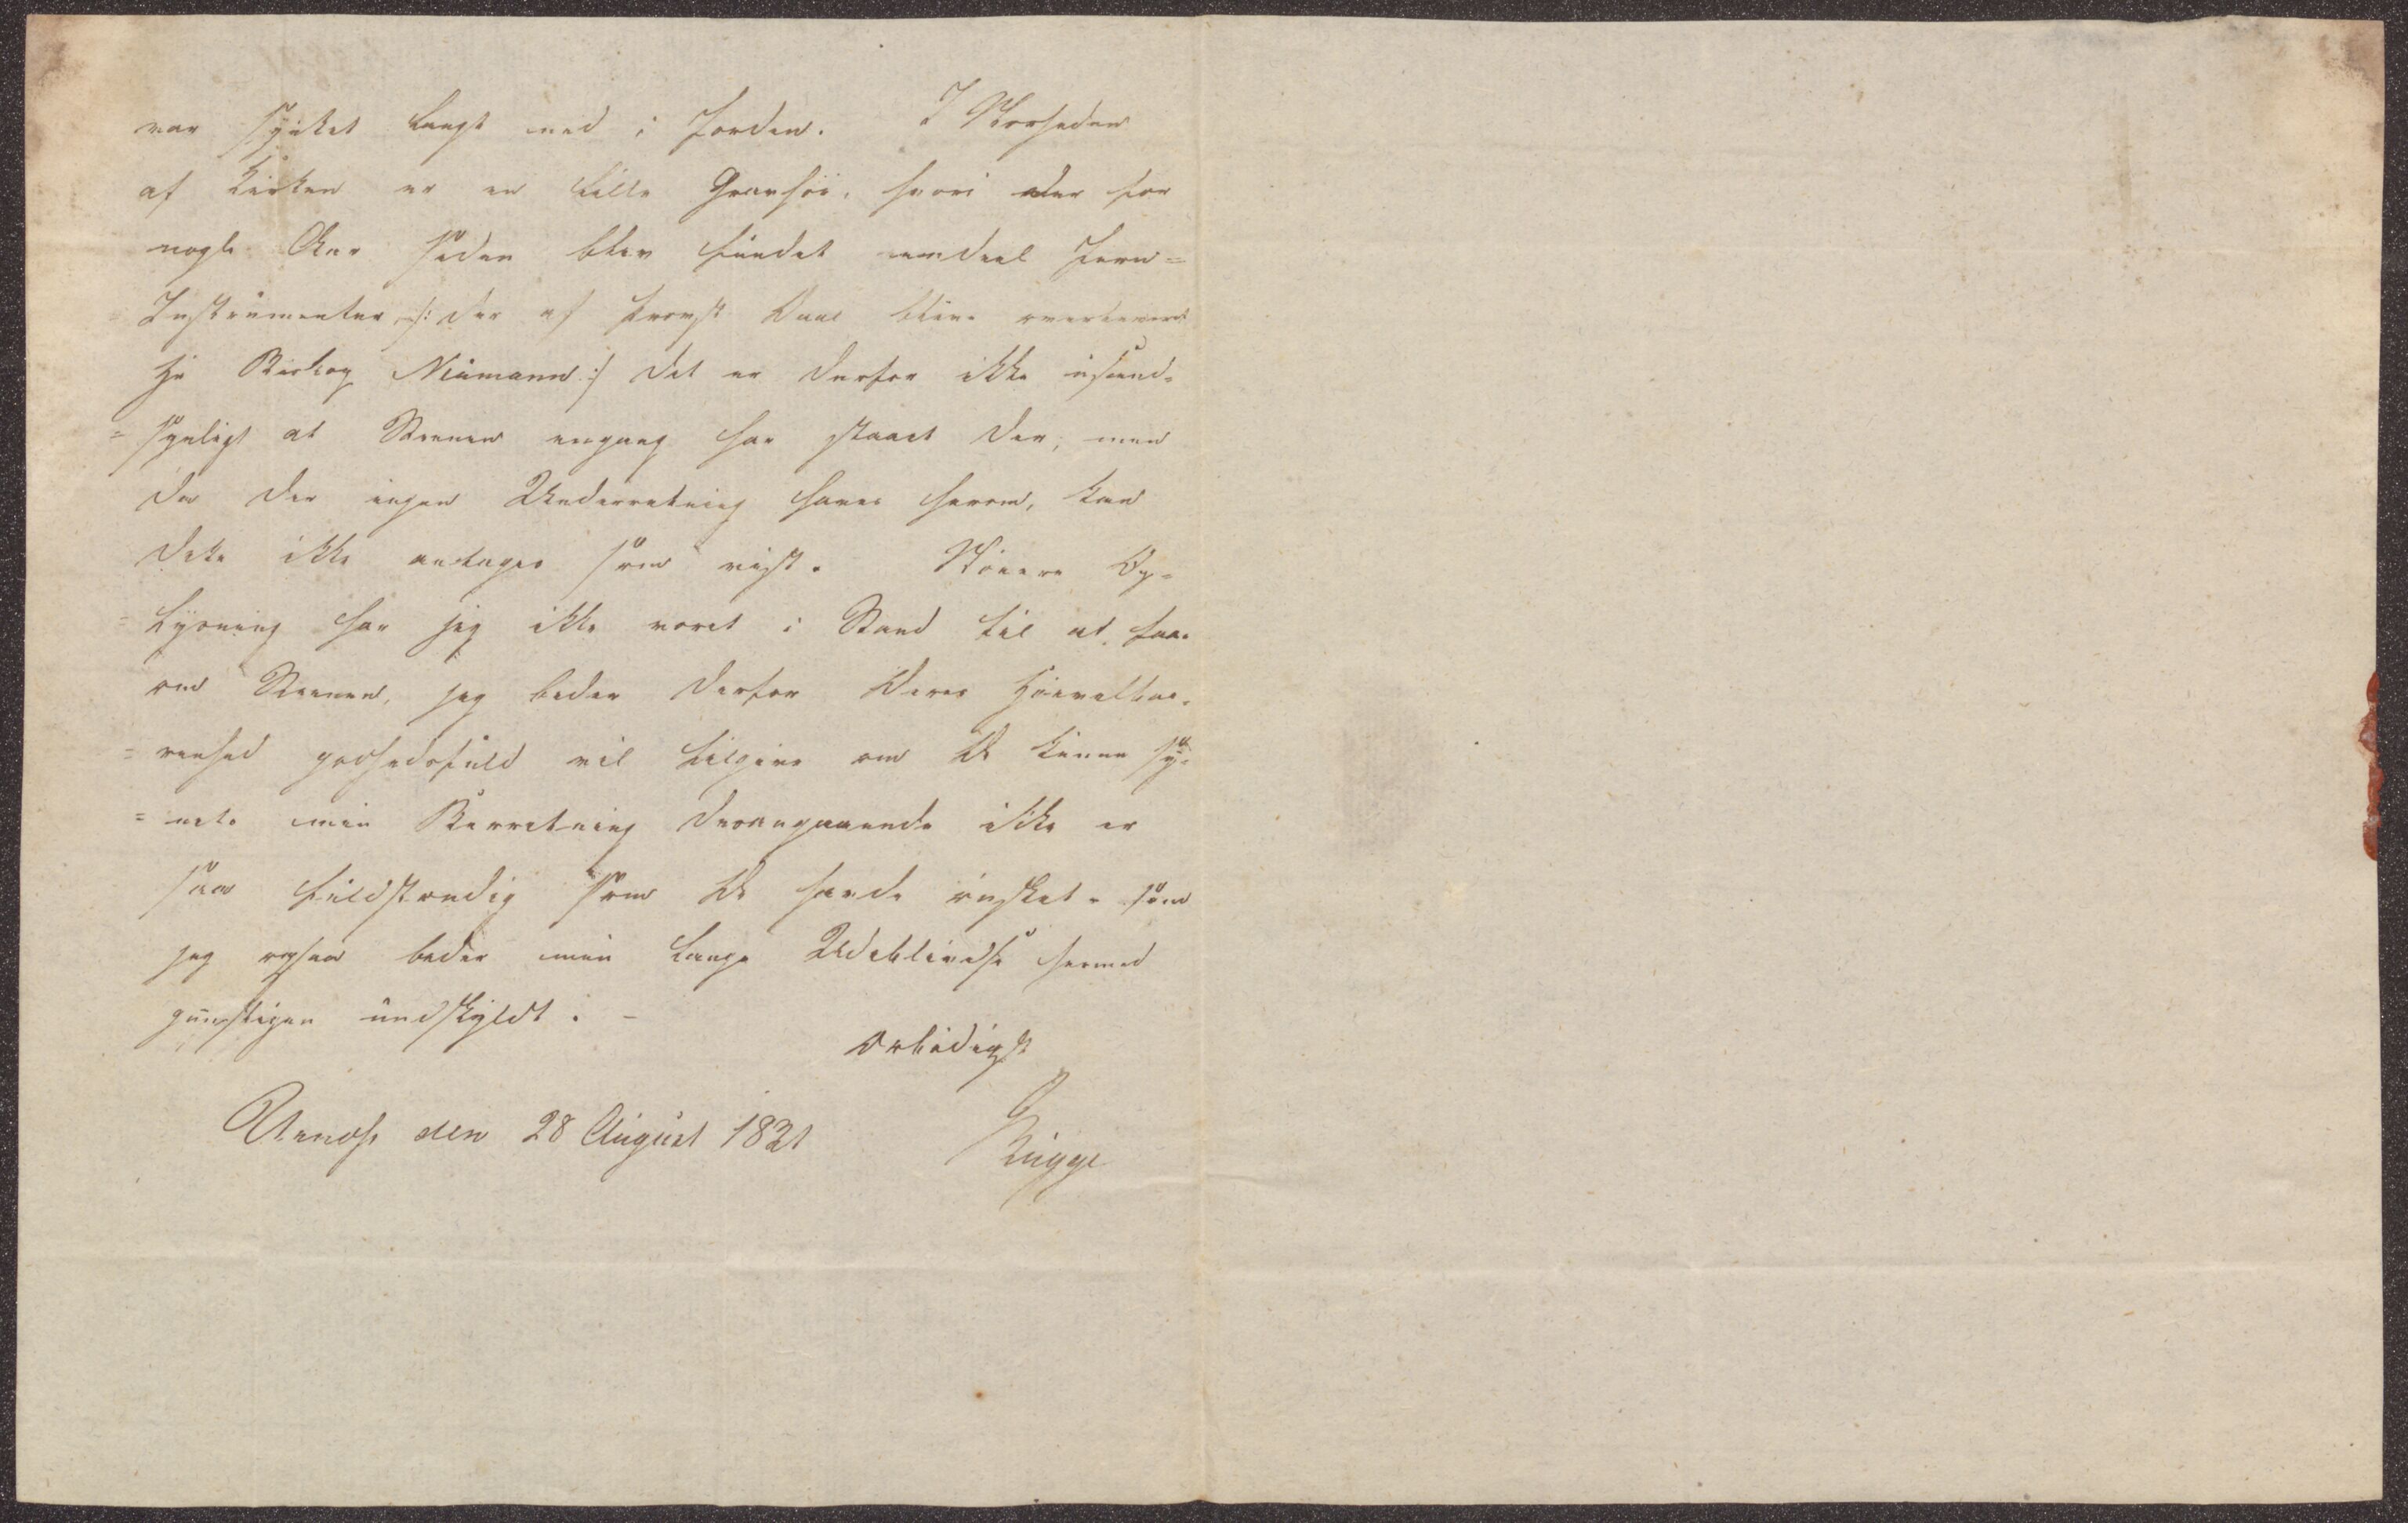 var sÿnket langt ned i Jorden. I Norheden
af Kirken er en lille Gravhöi, hvori der for
nogle Aar siden blev fundet eendeel Jern=
Instrumenter /: der af Provst Daae bleve overleveret
Hr Biskop Neumann :/ det er derfor ikke usand=
=synligt at Steenen engang har staaet der, men
da der ingen Underretning haves herom, kan
dete ikke antages som vist. Nöiere Op=
=lÿsning har jeg ikke voret i Stand til at faae
om Steenen, jeg beder derfor Deres Höivelbaa=
=renhed godhedsfuld vil tilgive om De kunne sÿ=
=nes min Berretning desangaaende ikke er
saa fuldstendig som De havde önsket. som
jeg ogsaa beder min lange Udeblivelse hermed
gunstigen undskÿldt. –
Örbödigst
den 28 August 1821
Rügge